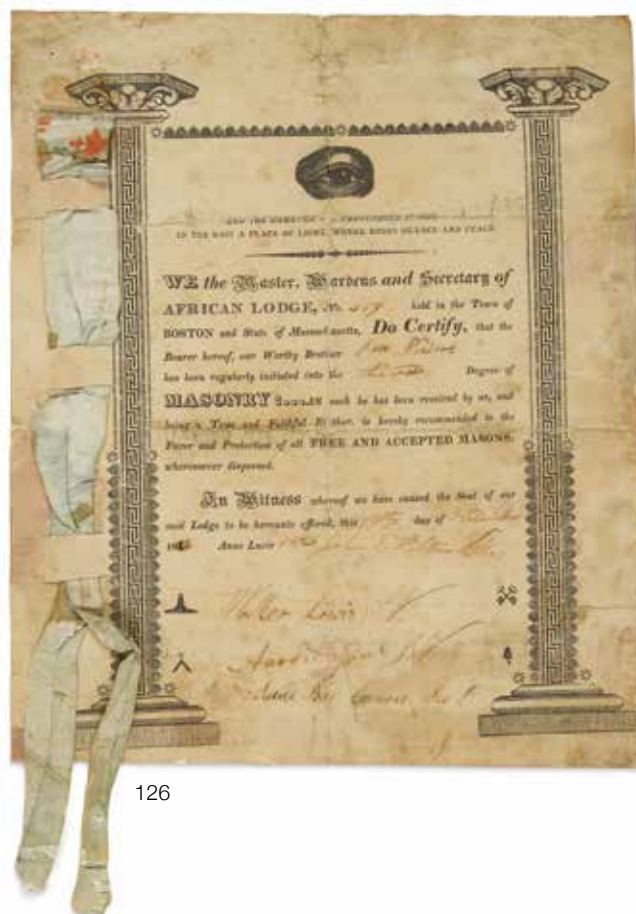 AND THE DARKNESS COMPREHENDED IT NOT.
IN THE EAST A PLACE OF LIGHT, WHERE REIGN SILENCE AND PEACE
WE the Master, Wardens and Secretary of
AFRICAN LODGE, No. 459 held in the Town of
BOSTON and State of Massachusetts, Do Certify, that the
Bearer hereof, our Worthy Brother
has been regularly initiated into the Degree of
MASONRY as such he has been received by us, and
being a True and Faithful Brother, is hereby recommended to the
Favor and Protection of all FREE AND ACCEPTED MASONS,
wheresoever dispersed.
In Witness whereof we have caused the Seal of our
said Lodge to be hereunto affixed, this day of
18 Anno Lucis
Walker Lewis
126